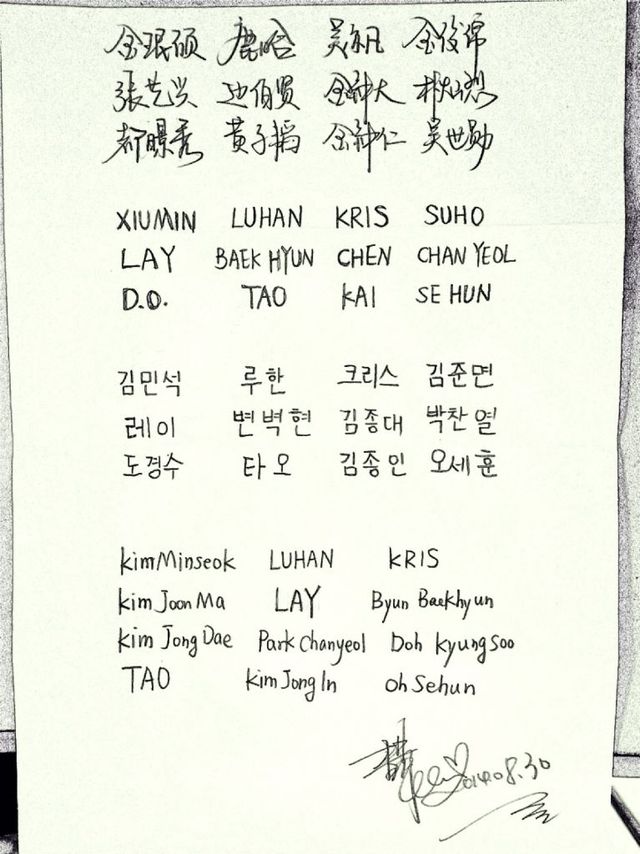 金珉硕 鹿晗 吴亦凡 金俊绵
張艺兴 边伯贤 金钟大 朴灿烈
都暻秀 黄子韬 金钟仁 吴世勋
XIUMIN LUHAN KRIS SUHO
LAY BAEK HYUN CHEN CHAN YEOL
D.O. TAO KAI SE HUN
김민석 루한 크리스 김준면
레이 변벽현 김종대 박찬열
도경수 타오 김종인 오세훈
kim Minseok LUHAN KRIS
kim Joon Ma LAY Byun Baekhyun
kim Jong Dae Park Chanyeol Doh kyung Soo
TAO kim Jong In oh Sehun
2014.08.30